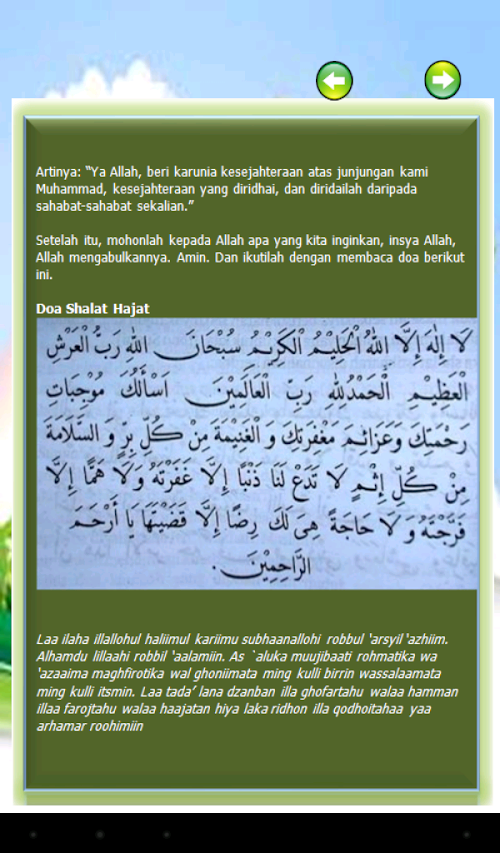 Artinya: "Ya Allah, beri karunia kesejahteraan atas junjungan kami
Muhammad, kesejahteraan yang diridhai, dan diridailah daripada
sahabat-sahabat sekalian."
Setelah itu, mohonlah kepada Allah apa yang kita inginkan, insya Allah,
Allah mengabulkannya. Amin. Dan ikutilah dengan membaca doa berikut
ini.
Doa Shalat Hajat
لَا إِلٰهَ إِلَّا اللهُ الْحَلِيْمُ الْكَرِيْمُ سُبْحَانَ اللهِ رَبُّ الْعَرْشِ
الْعَظِيْمِ الْحَمْدُ لِلّٰهِ رَبِّ الْعَالَمِيْنَ اَسْأَلُكَ مُوْجِبَاتِ
رَحْمَتِكَ وَعَزَائِمَ مَغْفِرَتِكَ وَالْغَنِيْمَةَ مِنْ كُلِّ بِرٍّ وَالسَّلَامَةَ
مِنْ كُلِّ إِثْمٍ لَا تَدَعْ لَنَا ذَنْبًا إِلَّا غَفَرْتَهُ وَلَا هَمًّا إِلَّا
فَرَّجْتَهُ وَلَا حَاجَةً هِيَ لَكَ رِضًا إِلَّا قَضَيْتَهَا يَا أَرْحَمَ
الرَّاحِمِيْنَ.
Laa ilaha illallohul haliimul kariimu subhaanallohi robbul 'arsyil 'azhiim.
Alhamdu lillaahi robbil 'aalamiin. As `aluka muujibaati rohmatika wa
'azaaima maghfirotika wal ghoniimata ming kulli birrin wassalaamata
ming kulli itsmin. Laa tada' lana dzanban illa ghofartahu walaa hamman
illaa farojtahu walaa haajatan hiya laka ridhon illa qodhoitahaa yaa
arhamar roohimiin